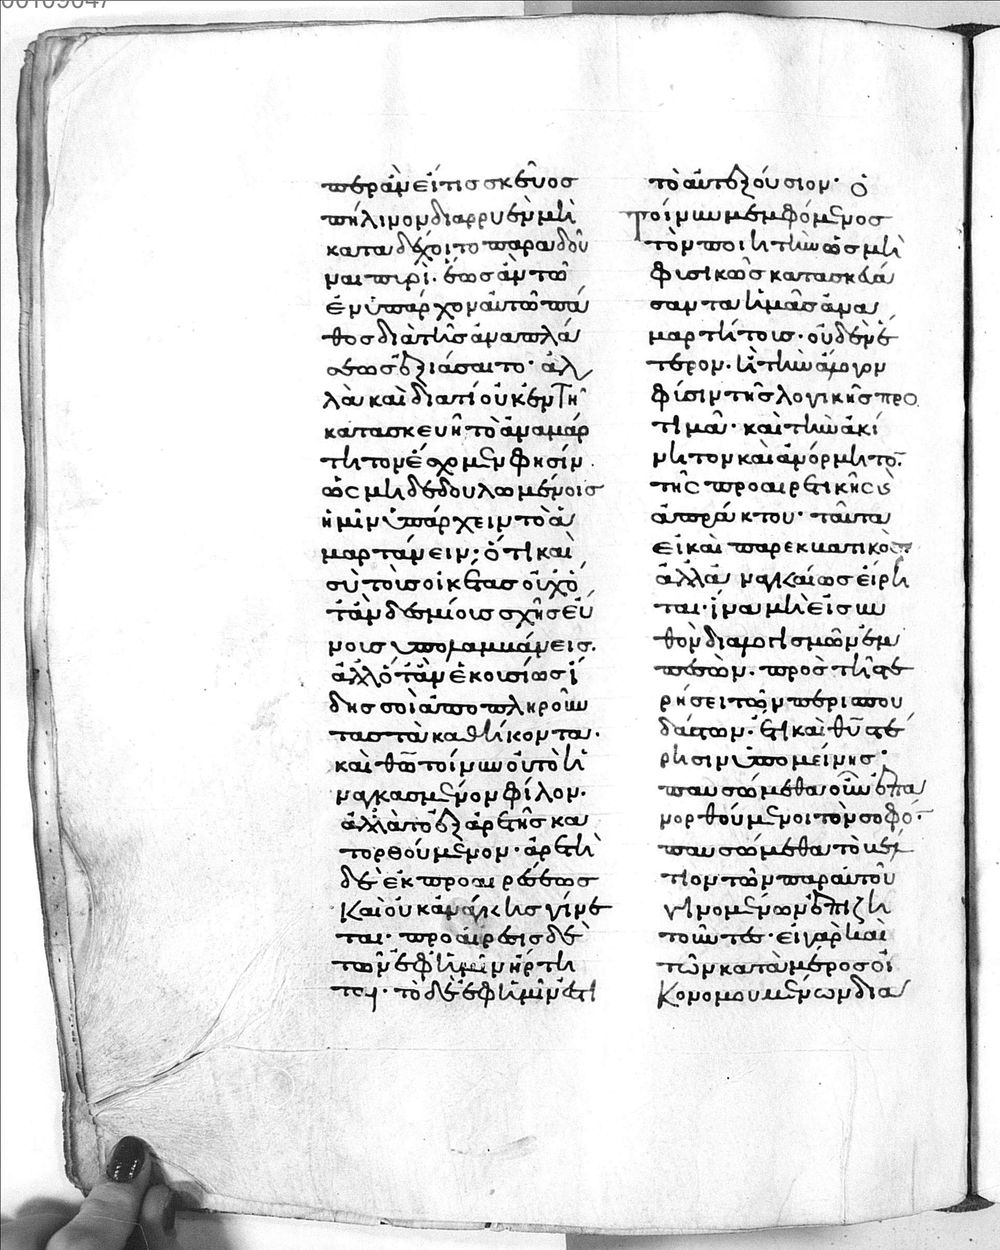 ὥσπερ ἂν εἴ τις σκεῦος
πήλινον διαρρυὲν μὴ
καταδέχοιτο παραδοῦ
ναι πυρὶ· ἕως ἂν τῶ
ἐνυπάρχον αὐτῶ πά
θος διὰ τῆς ἀναπλά
σεως ἐξιάσαιτο· ἀλ
λὰ καὶ διατί οὐκ ἐν τῆ
κατασκευῆ τὸ ἀναμάρ
τητον ἔσχομεν φησίν
ὡς μὴ δεδουλωμένοις
ἡμῖν ὑπάρχειν τὸ ἁ
μαρτάνειν; ὅτι καὶ
σὺ τοὺς οἰκέτας οὐχ ὅ
ταν δεσμίους σχῆς εὔ
νοις ὑπολαμβάνεις.
ἀλλ' ὅταν ἑκουσίως ἴ
δης σοι ἀποπληροῦν
τας τὰ καθήκοντα·
καὶ θῶ τοίνυν οὐ τὸ ἠ
ναγκασμένον φίλον.
ἀλλὰ τὸ ἐξ ἀρετῆς κα
τορθούμενον· ἀρετὴ
δὲ ἐκ προαιρέσεως
καὶ οὐκ ἀνάγκης γίνε
ται· προαίρεσις δὲ
τῶν ἐφ' ἡμῖν ἤρτη
ται· τὸ δὲ ἐφ' ἡμῖν ἐστὶ
τὸ αὐτεξούσιον· ὁ
τοίνυν μεμφόμενος
τὸν ποιητὴν ὡς μὴ
φυσικῶς κατασκευά
σαντα ἡμᾶς ἀνα
μαρτήτους· οὐδὲν ἕ
τερον. ἢ τὴν ἄλογον
φύσιν τῆς λογικῆς προ
τιμᾶ· καὶ τὴν ἀκί
νητον καὶ ἀνόρμητον
τῆς προαιρετικῆς κ
ἐμπράκτου· ταῦτα
εἰ καὶ παρεκβατικῶς
ἀλλ' ἀναγκαίως εἴρη
ται· ἵνα μὴ εἰς βυ
θὸν διαλογισμῶν ἐμ
πεσὼν. πρὸς τῆ στε
ρήσει τῶν περισπου
δάστων. ἔτι καὶ θῦ στέ
ρησιν ὑπομείνης;
παυσώμεθα οὖν ἐπα
νορθούμενοι τὸν σοφόν
παυσώμεθα τὸ βέλ
τιον τῶν παρ' αὐτοῦ
γινομένων ἐπιζη
τοῦντες· εἰ γὰρ καὶ
τῶν κατὰ μέρος οἰ
κονομουμένων δια